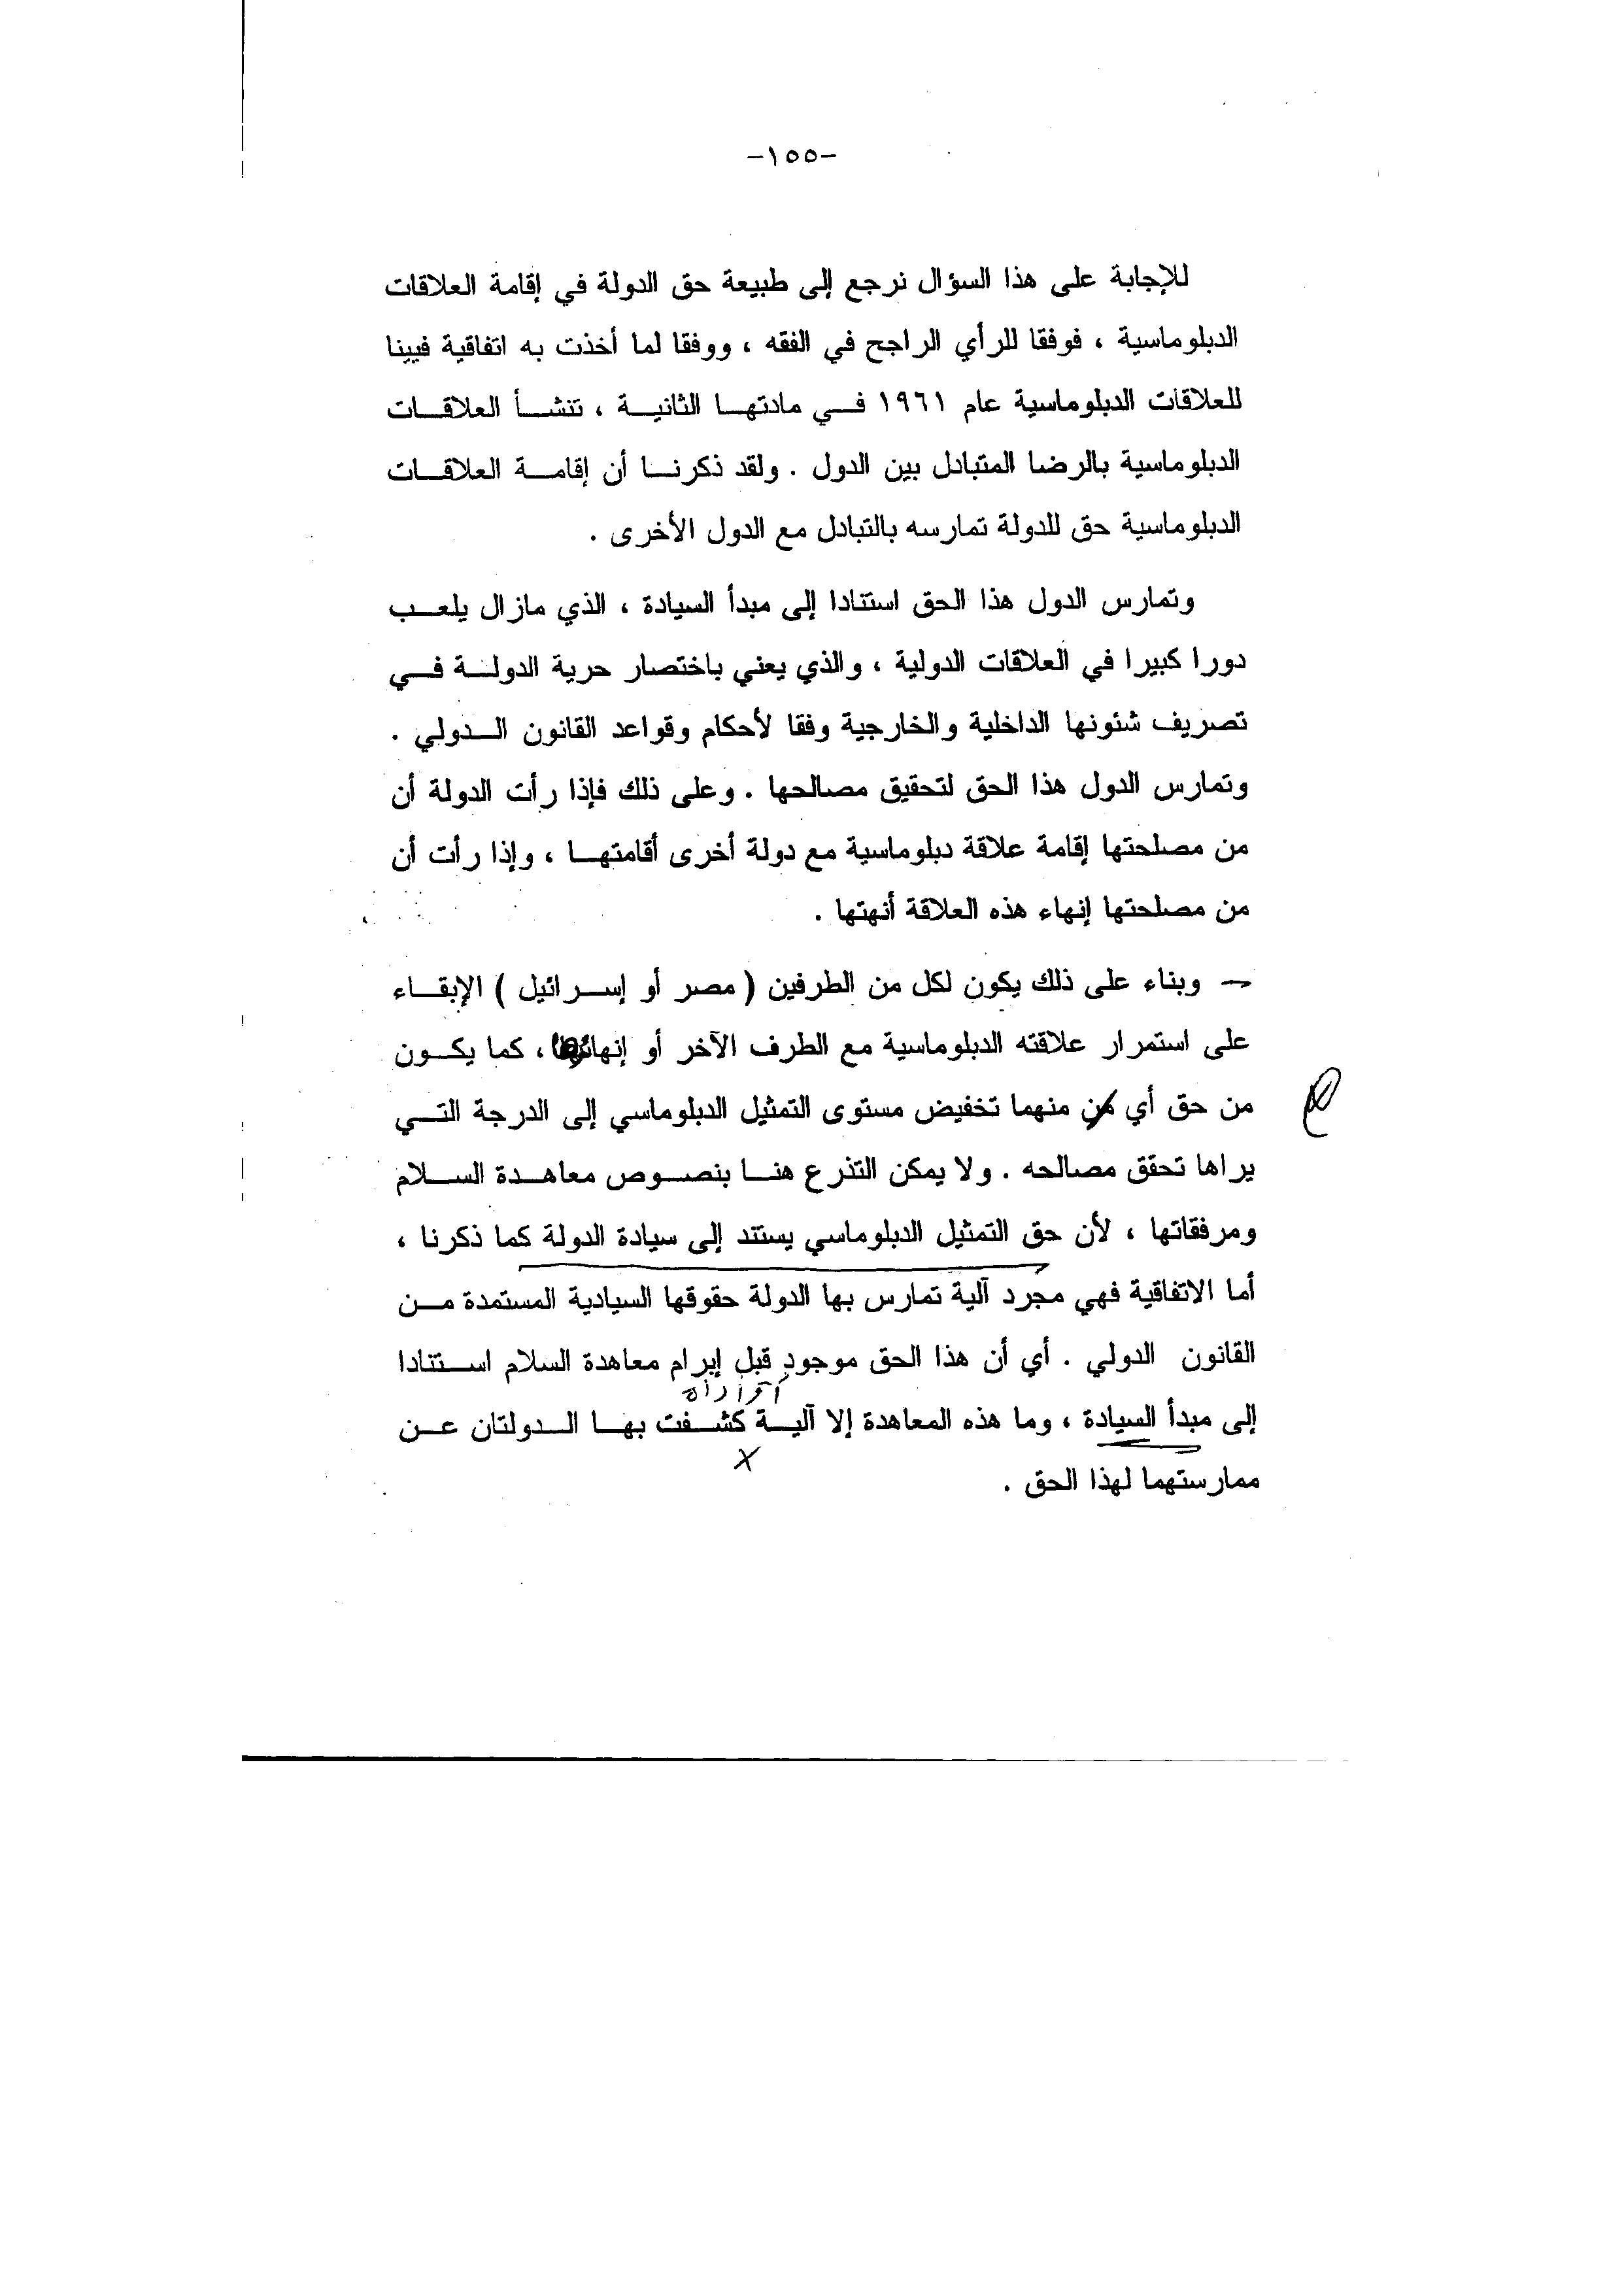 -١٥٥-
للإجابة على هذا السؤال نرجع إلى طبيعة حق الدولة في إقامة العلاقات
الدبلوماسية ، فوفقا للرأي الراجح في الفقه ، ووفقا لما أخذت به اتفاقية فيينا
للعلاقات الدبلوماسية عام ١٩٦١ في مادتها الثانية ، تنشأ العلاقات
الدبلوماسية بالرضا المتبادل بين الدول . ولقد ذكرنا أن إقامة العلاقات
الدبلوماسية حق للدولة تمارسه بالتبادل مع الدول الأخرى .
وتمارس الدول هذا الحق استنادا إلى مبدأ السيادة ، الذي مازال يلعب
دورا كبيرا في العلاقات الدولية ، والذي يعني باختصار حرية الدولة في
تصريف شئونها الداخلية والخارجية وفقا لأحكام وقواعد القانون الدولي .
وتمارس الدول هذا الحق لتحقيق مصالحها . وعلى ذلك فإذا رأت الدولة أن
من مصلحتها إقامة علاقة دبلوماسية مع دولة أخرى أقامتها ، وإذا رأت أن
من مصلحتها إنهاء هذه العلاقة أنهتها .
– وبناء على ذلك يكون لكل من الطرفين ( مصر أو إسرائيل ) الإبقاء
على استمرار علاقته الدبلوماسية مع الطرف الآخر أو إنهائها ، كما يكون
من حق أي من منهما تخفيض مستوى التمثيل الدبلوماسي إلى الدرجة التي
يراها تحقق مصالحه . ولا يمكن التذرع هنا بنصوص معاهدة السلام
ومرفقاتها ، لأن حق التمثيل الدبلوماسي يستند إلى سيادة الدولة كما ذكرنا ،
أما الاتفاقية فهي مجرد آلية تمارس بها الدولة حقوقها السيادية المستمدة من
القانون الدولي . أي أن هذا الحق موجود قبل إبرام معاهدة السلام استنادا
إلى مبدأ السيادة ، وما هذه المعاهدة إلا آلية كشفت بها الدولتان عن
ممارستهما لهذا الحق .